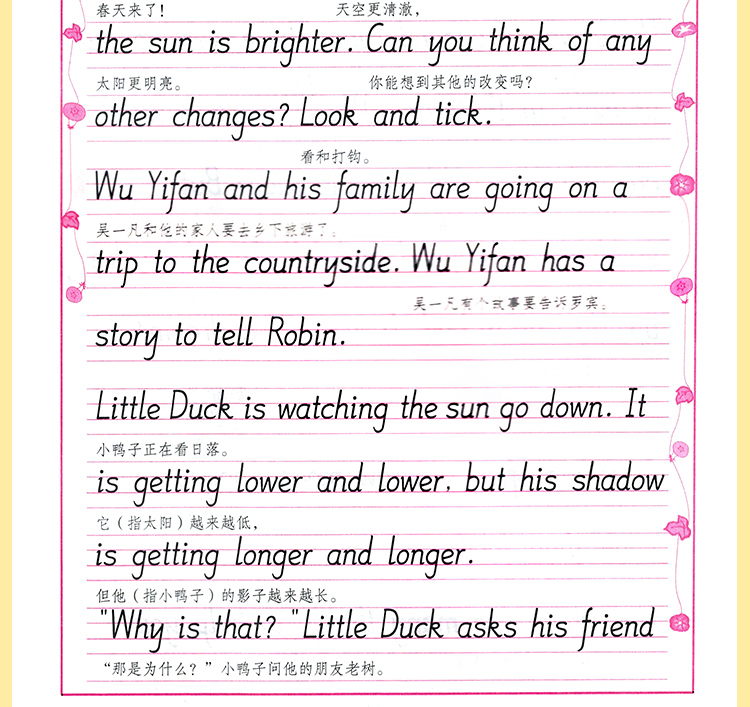 春天来了! 天空更清澈,
the sun is brighter. Can you think of any
太阳更明亮。 你能想到其他的改变吗?
other changes? Look and tick.
看和打钩。
Wu Yifan and his family are going on a
吴一凡和他的家人要去乡下旅游了。
trip to the countryside. Wu Yifan has a
吴一凡有个故事要告诉罗宾。
story to tell Robin.
Little Duck is watching the sun go down. It
小鸭子正在看日落。
is getting lower and lower, but his shadow
它(指太阳)越来越低,
is getting longer and longer.
但他(指小鸭子)的影子越来越长。
"Why is that? "Little Duck asks his friend
“那是为什么?”小鸭子问他的朋友老树。